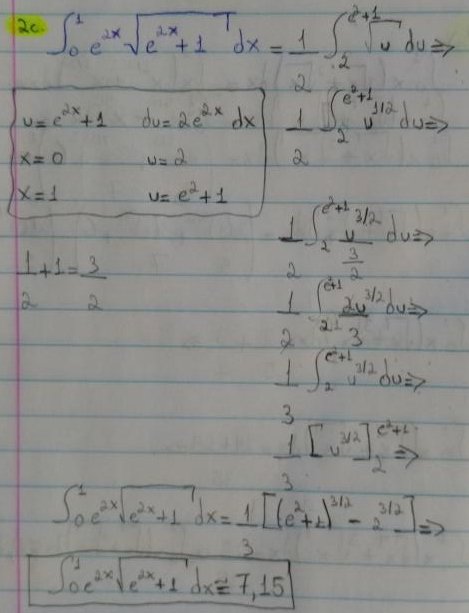 2c. ∫₀¹ e^{2x} √(e^{2x}+1) dx = 1/2 ∫₂^{e²+1} √u du ⇒
u = e^{2x}+1 du = 2e^{2x} dx
x = 0 u = 2
x = 1 u = e²+1
1/2 ∫₂^{e²+1} u^{3/2} du ⇒
1/2 + 1 = 3/2
1/2 ∫₂^{e²+1} u^{3/2}/(3/2) du ⇒
1/2 ∫₂^{e²+1} 2u^{3/2}/3 du ⇒
1/3 ∫₂^{e²+1} u^{3/2} du ⇒
1/3 [u^{3/2}]₂^{e²+1} ⇒
∫₀¹ e^{2x} √(e^{2x}+1) dx = 1/3 [(e²+1)^{3/2} - 2^{3/2}] ⇒
∫₀¹ e^{2x} √(e^{2x}+1) dx ≅ 7,15